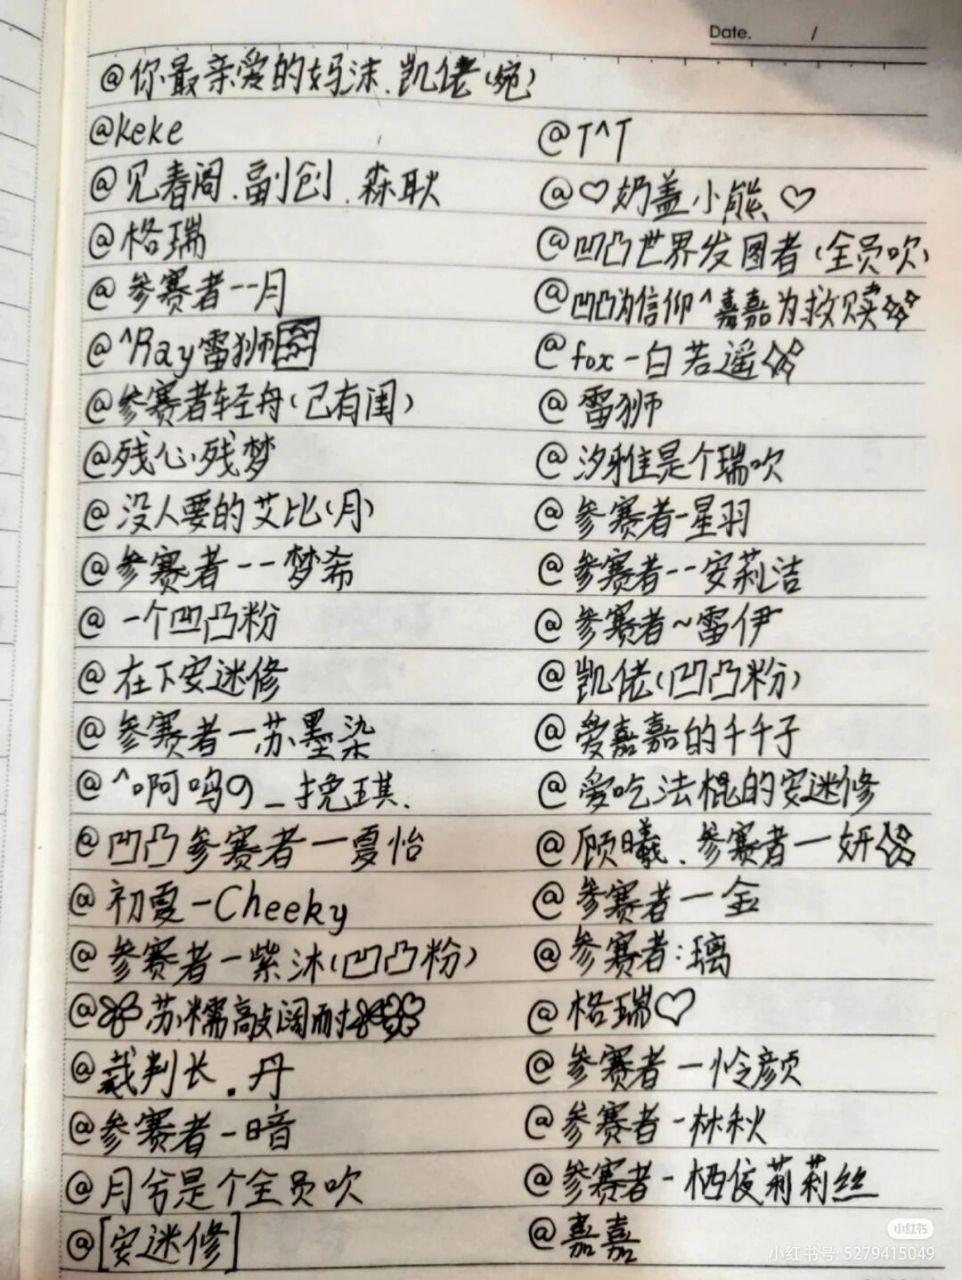 Date. /
@你最亲爱的妈沫.凯佬(宛)
@keke @T^T
@见春阁.副创.森耿 @♡奶盖小熊♡
@格瑞 @凹凸世界发图者(全员吹)
@参赛者--月 @凹凸为信仰^嘉嘉为救赎
@^Ray雷狮 @fox-白若遥
@参赛者轻舟(已有闺) @雷狮
@残心残梦 @汐雅是个瑞吹
@没人要的艾比(月) @参赛者-星羽
@参赛者--梦希 @参赛者--安莉洁
@一个凹凸粉 @参赛者~雷伊
@在下安迷修 @凯佬(凹凸粉)
@参赛者-苏墨染 @爱嘉嘉的千千子
@^啊鸣の_挽琪. @爱吃法棍的安迷修
@凹凸参赛者一夏怡 @顾曦.参赛者一妍
@初夏-Cheeky @参赛者一金
@参赛者-紫沐(凹凸粉) @参赛者:璃
@苏糯敲阔耐 @格瑞♡
@裁判长.丹 @参赛者一怜颜
@参赛者-暗 @参赛者-林秋
@月兮是个全员吹 @参赛者-栖俊莉莉丝
@[安迷修] @嘉嘉
小红书
小红书号: 5279415049